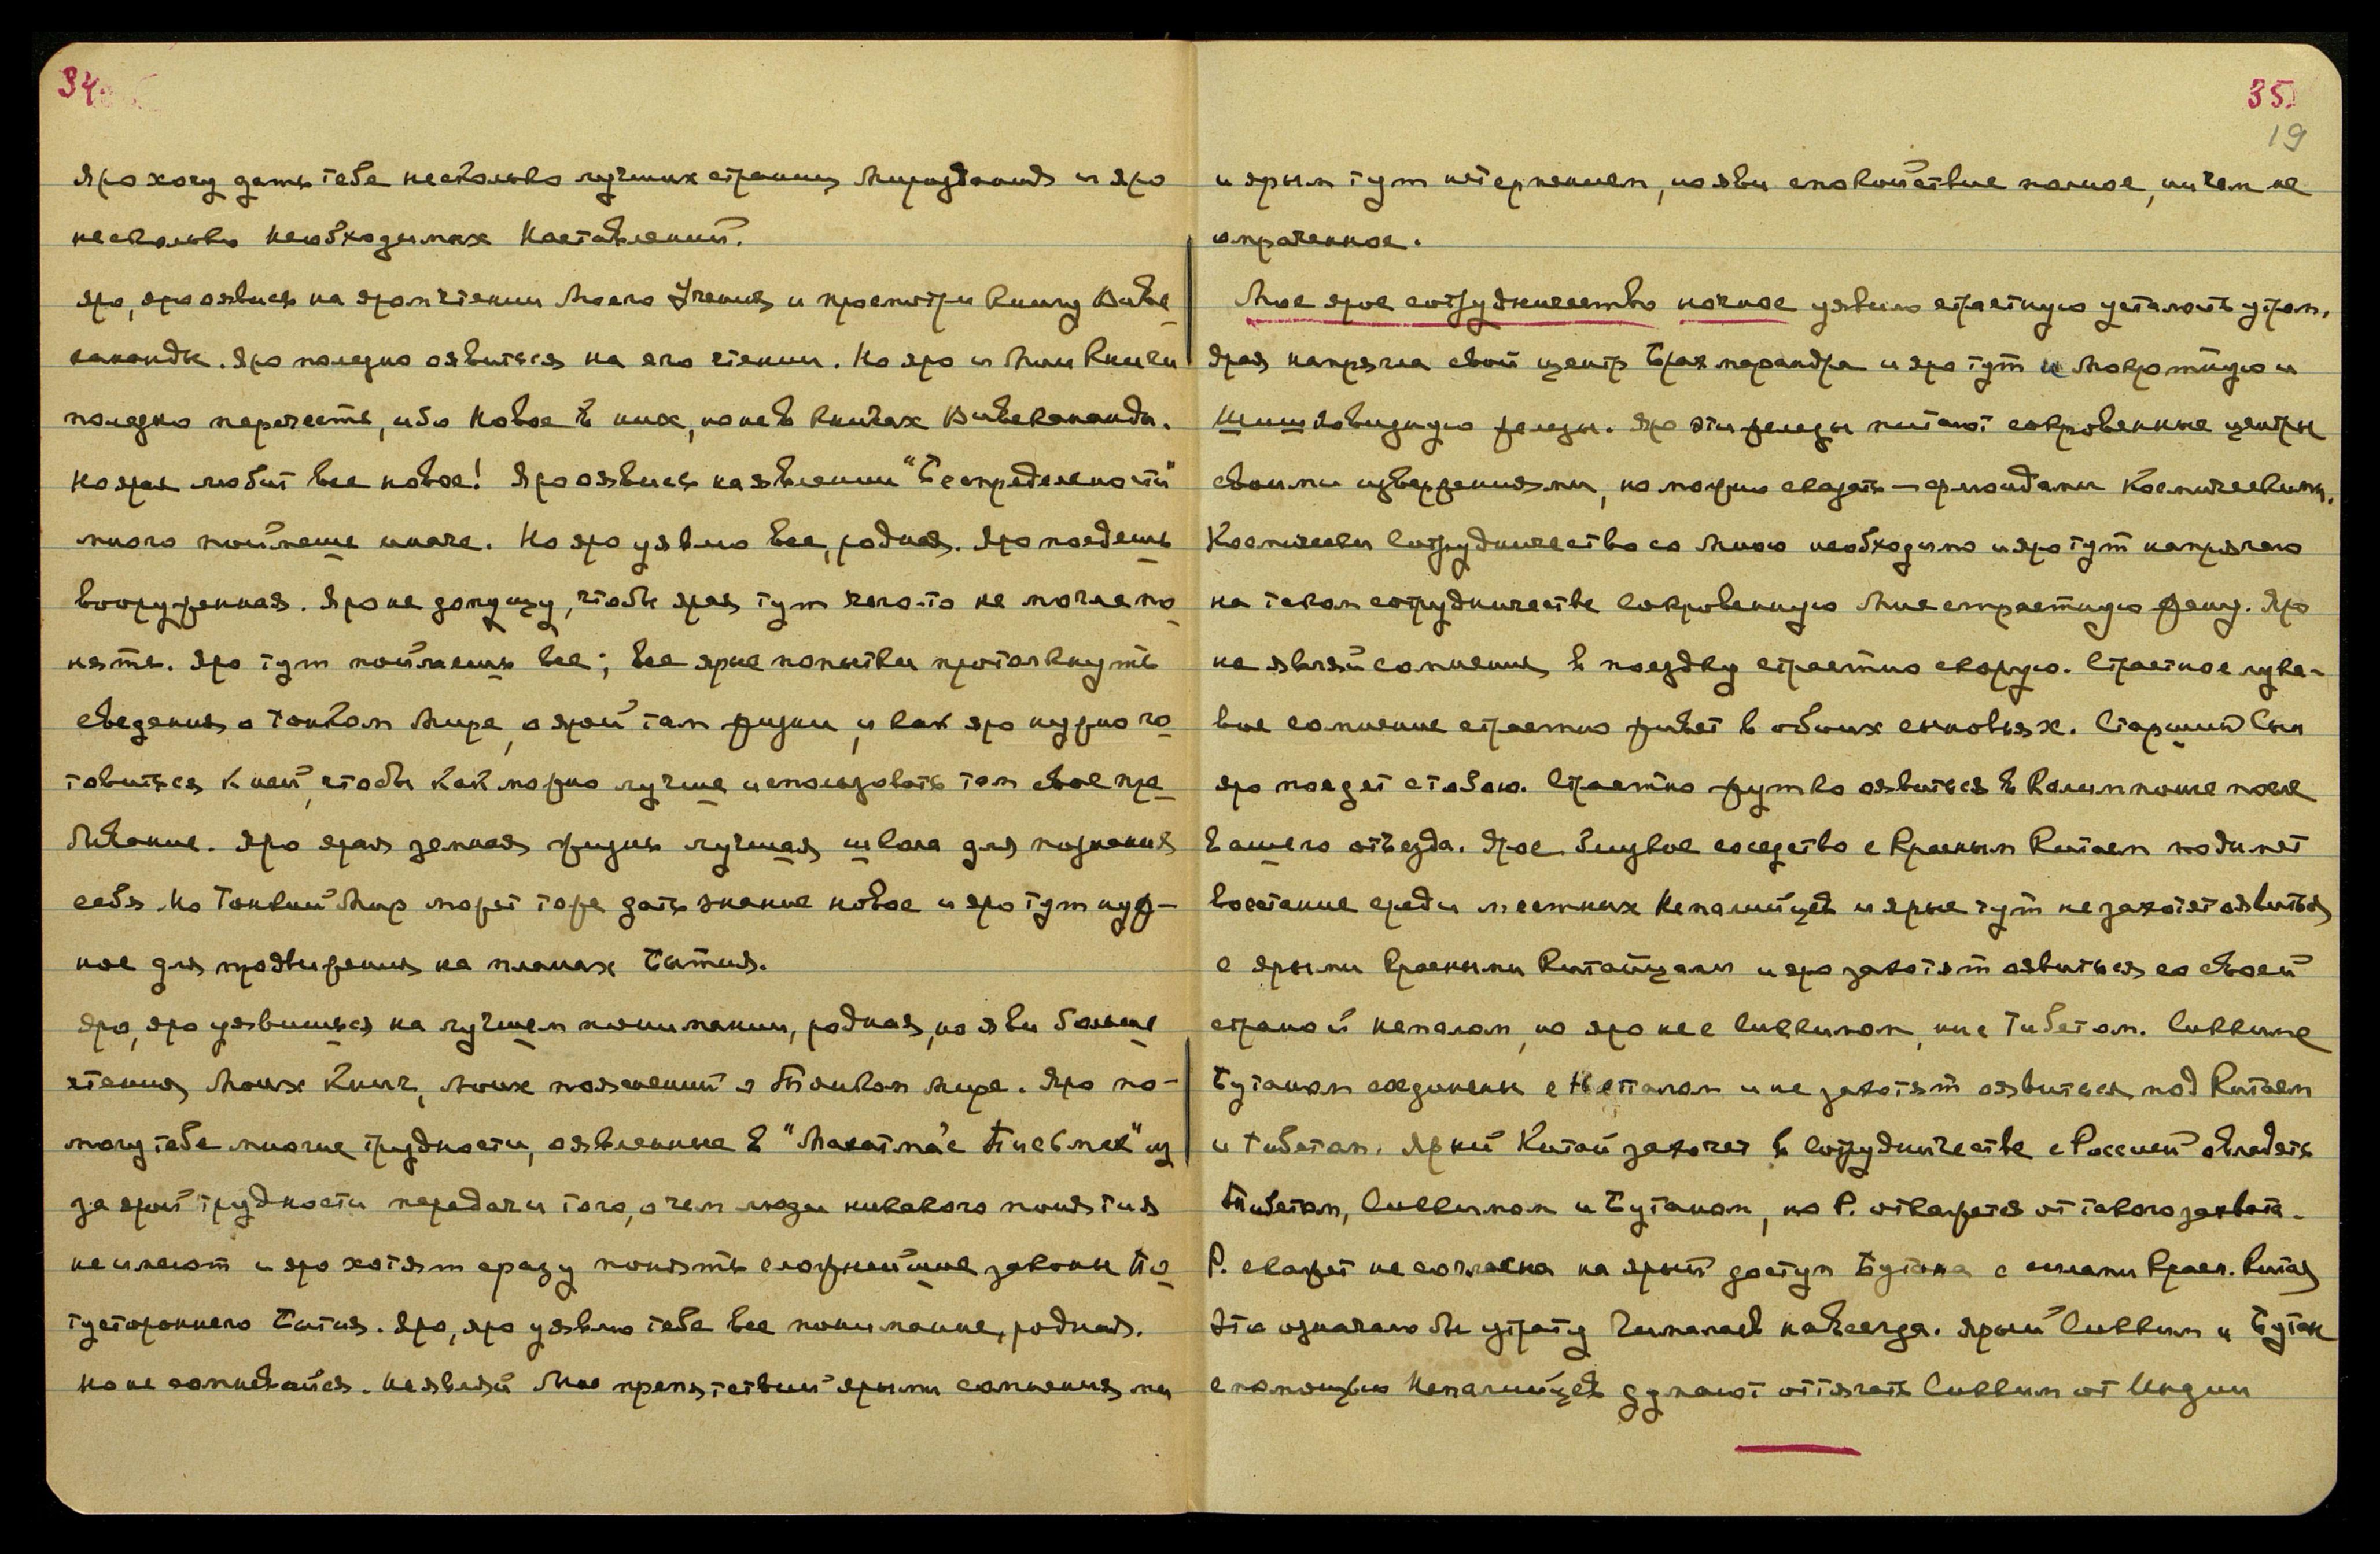 34
Яро хочу дать тебе несколько лучших страниц Мироздания и яро
несколько необходимых Наставлений.
Яро, яро оявись на яром чтении Моего Учения и просмотри книгу Виве-
кананды. Яро полезно оявиться на его чтении. Но яро и Мои книги
полезно перечесть, ибо Новое в них, но не в книгах Вивекананды.
Но ярая любит все новое! Яро оявись на явлении "Беспредельности"
много поймешь иначе. Но яро уявлю все, родная. Яро поедешь
вооруженная. Яро не допущу, чтобы ярая тут чего-то не могла по
нять. Яро тут поймешь все; все ярые попытки протолкнуть
сведения о Тонком Мире, о ярой там жизни, и как яро нужно го
товиться к ней, чтобы как можно лучше использовать там свое пре
бывание. Яро ярая земная жизнь лучшая школа для познания
себя. Но Тонкий Мир может тоже дать знание новое и яро тут нуж-
ное для продвижения на планах Бытия.
Яро, яро уявишься на лучшем понимании, родная, но яви больше
чтения Моих Книг, Моих пояснений о Тонком Мире. Яро по-
могу тебе многие трудности, оявленные в "Махатма'с Письмах" из
за ярой трудности передачи того, о чем люди никакого понятия
не имеют и яро хотят сразу понять сложнейшие законы По
тустороннего Бытия. Яро, яро уявлю тебе все понимание, родная.
Но не сомневайся. Не являй Мне препятствий ярыми сомнениями
35
19
и ярым тут нетерпением, но яви спокойствие полное, ничем не
омраченное.
Мое ярое сотрудничество ночное уявило страстную усталость утром.
Ярая напрягла свой центр Брахмарандра и яро тут и Мокротную и
Шишковидную железы. Яро эти железы питают сокровенные центры
своими извержениями, но можно сказать – флюидами Космическими.
Космически Сотрудничество со Мною необходимо и яро тут напрягаю
на таком сотрудничестве Сокровенную Мне страстную жену. Яро
не являй сомнения в поездку страстно скорую. Страстное лука-
вое сомнение страстно живет в обоих сыновьях. Старший Сын
яро поедет с тобою. Страстно жутко оявиться в Калимпонге после
Вашего отъезда. Ярое близкое соседство с Красным Китаем подымет
восстание среди местных Непалийцев и ярые тут не захотят оявиться
с ярыми Красными Китайцами и яро захотят оявиться со своей
страной Непалом, но яро не с Сиккимом, ни с Тибетом. Сикким с
Бутаном соединены с Непалом и не захотят оявиться под Китаем
и Тибетом. Яркий Китай захочет в Сотрудничестве с Россией овладеть
Тибетом, Сиккимом и Бутаном, но Р. откажется от такого захвата.
Р. скажет не согласна на ярый доступ Бутана с силами Красн. Китая
Это означало бы утрату Гималаев навсегда. Ярый Сикким и Бутан
с помощью Непалийцев думают оттягать Сикким от Индии